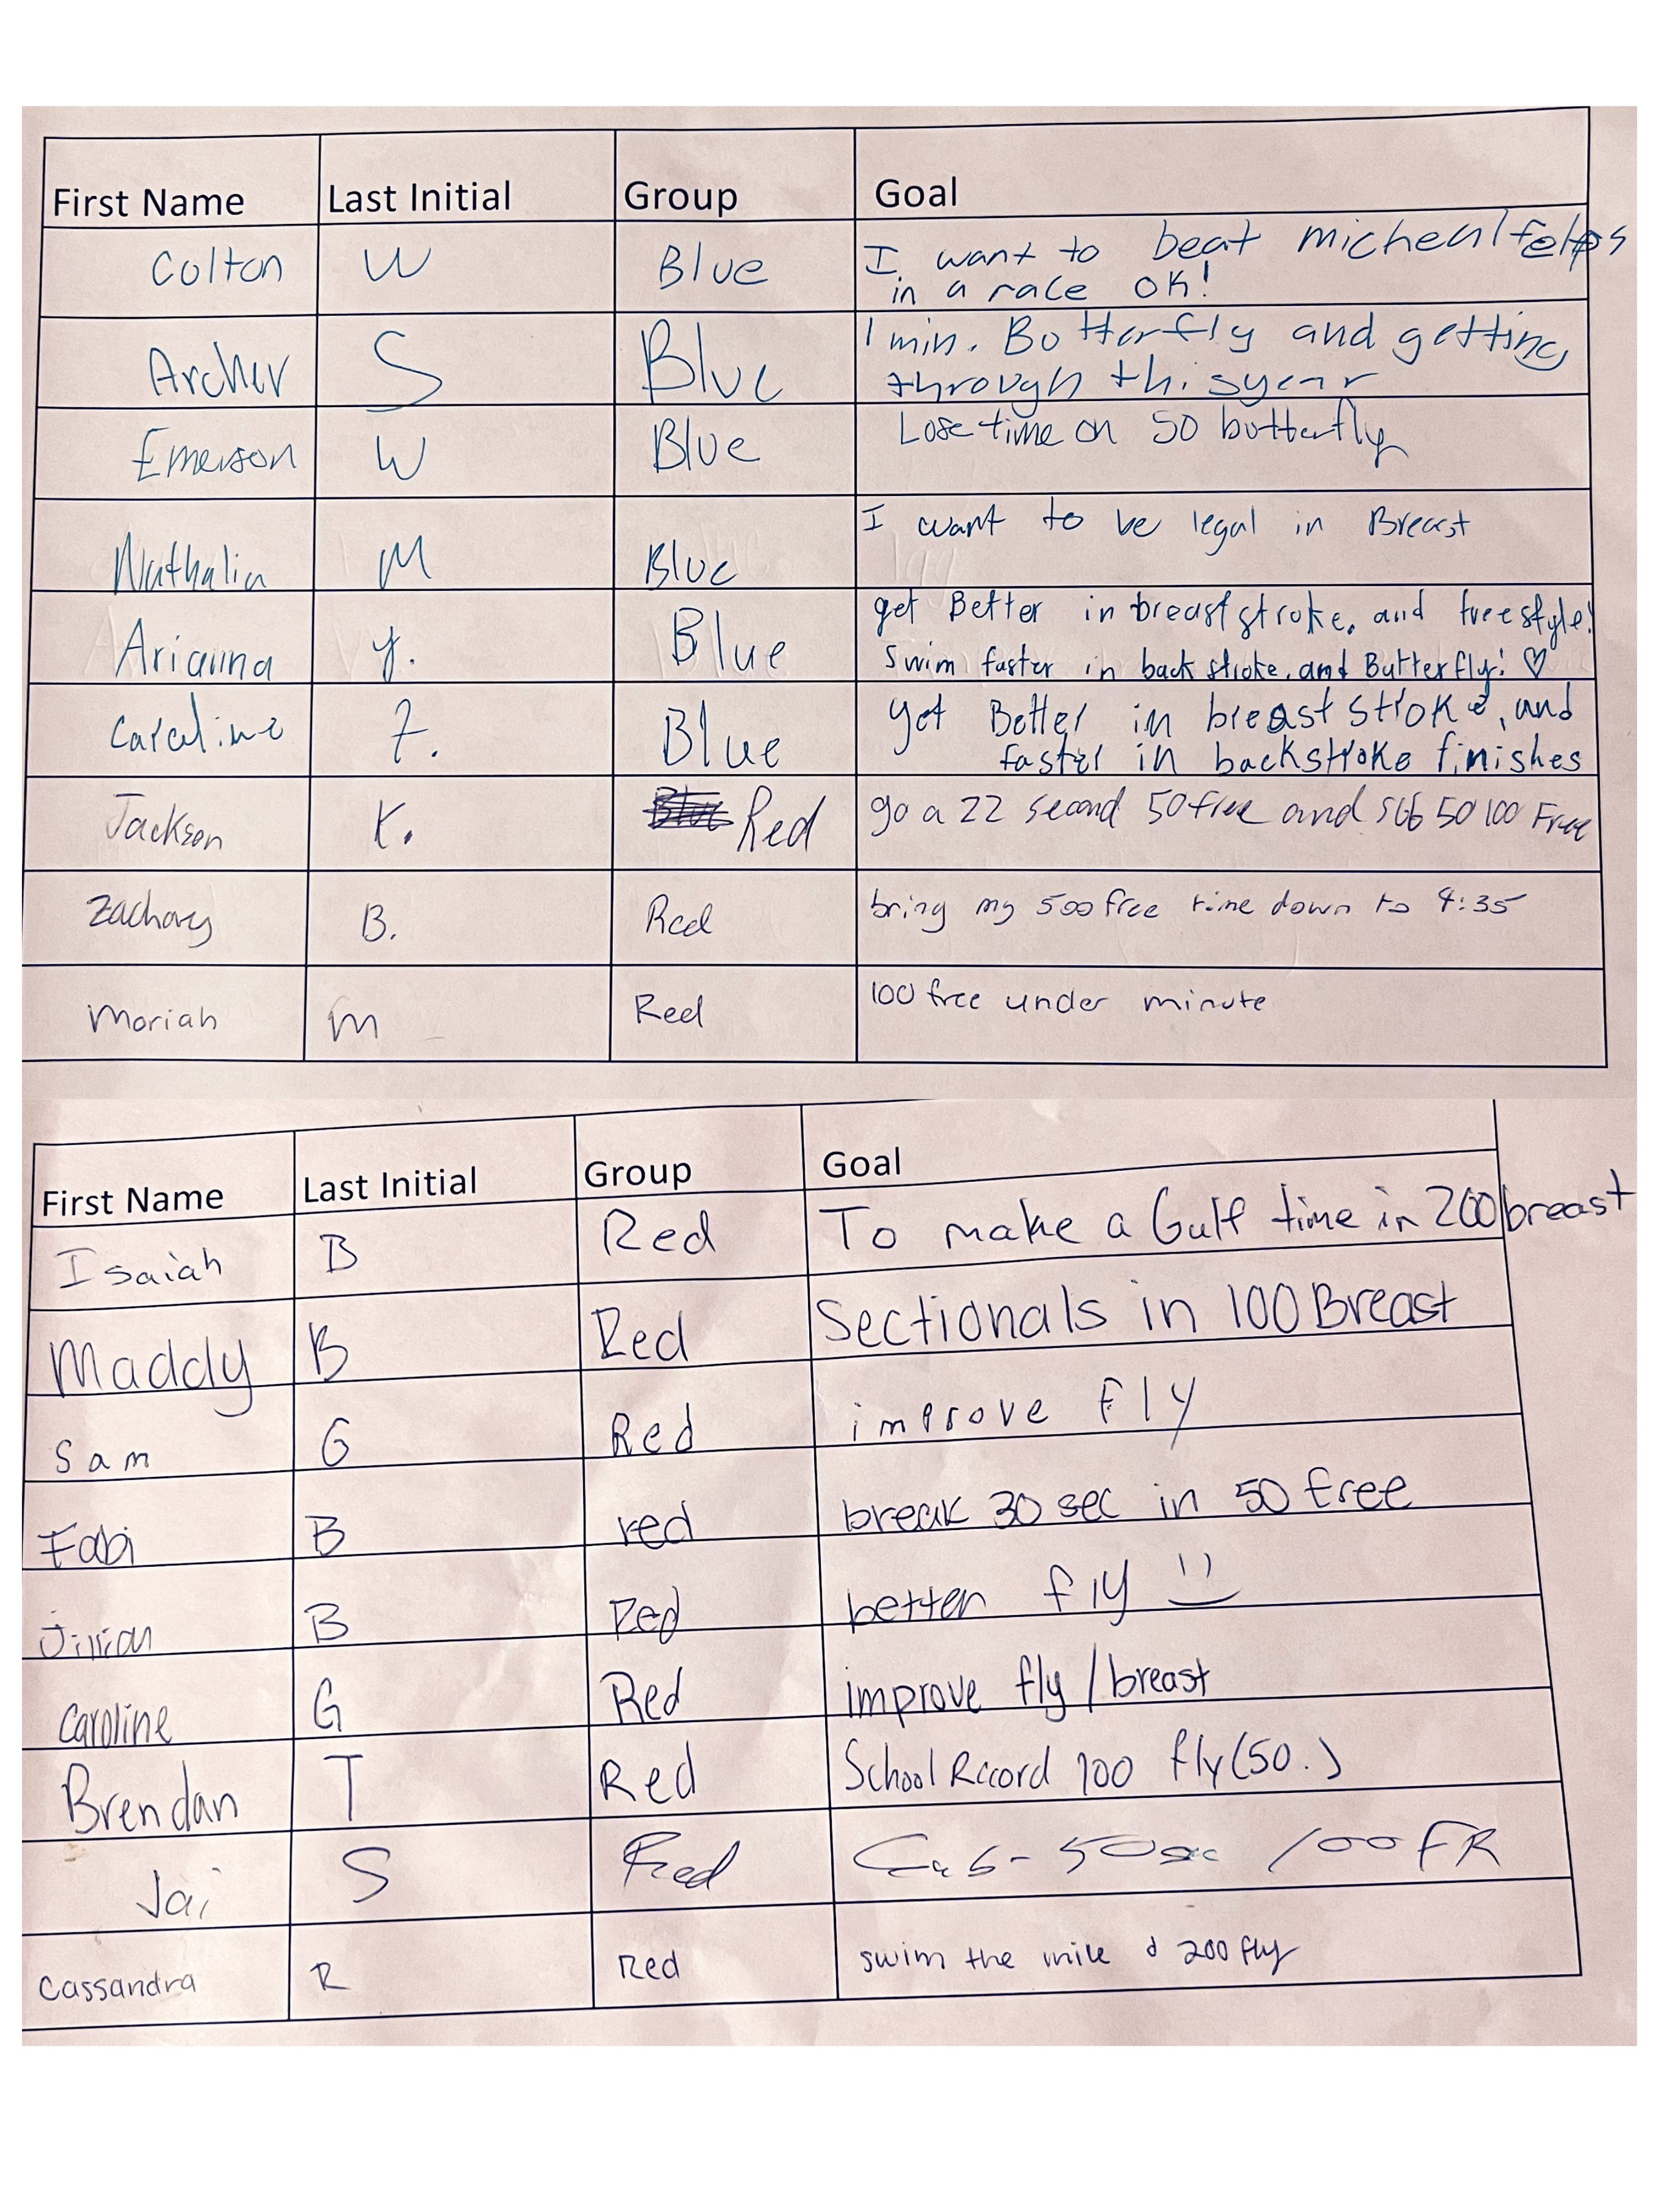 First Name Last Initial Group Goal
Colton W Blue I want to beat micheal felps
in a race OK!
Archer S Blue 1 min. Butterfly and getting
through this year
Emerson W Blue Lose time on 50 butterfly
Nathalia M Blue I want to be legal in Breast
Arianna Y. Blue get Better in breaststroke, and freestyle!
Swim faster in back stroke, and Butterfly! ♡
Caroline Z. Blue get Better in breast stroke, and
faster in backstroke finishes
Jackson K. Red go a 22 second 50 free and sub 50 100 Free
Zachary B. Red bring my 500 free time down to 4:35
Moriah M Red 100 free under minute
First Name Last Initial Group Goal
Isaiah B Red To make a Gulf time in 200 breast
Maddy B Red Sectionals in 100 Breast
Sam G Red improve fly
Fabi B red break 30 sec in 50 free
Jillian B Red better fly
Caroline G Red improve fly / breast
Brendan T Red School Record 100 fly (50.)
Jai S Red 50 sec 100 FR
Cassandra R Red swim the mile & 200 fly